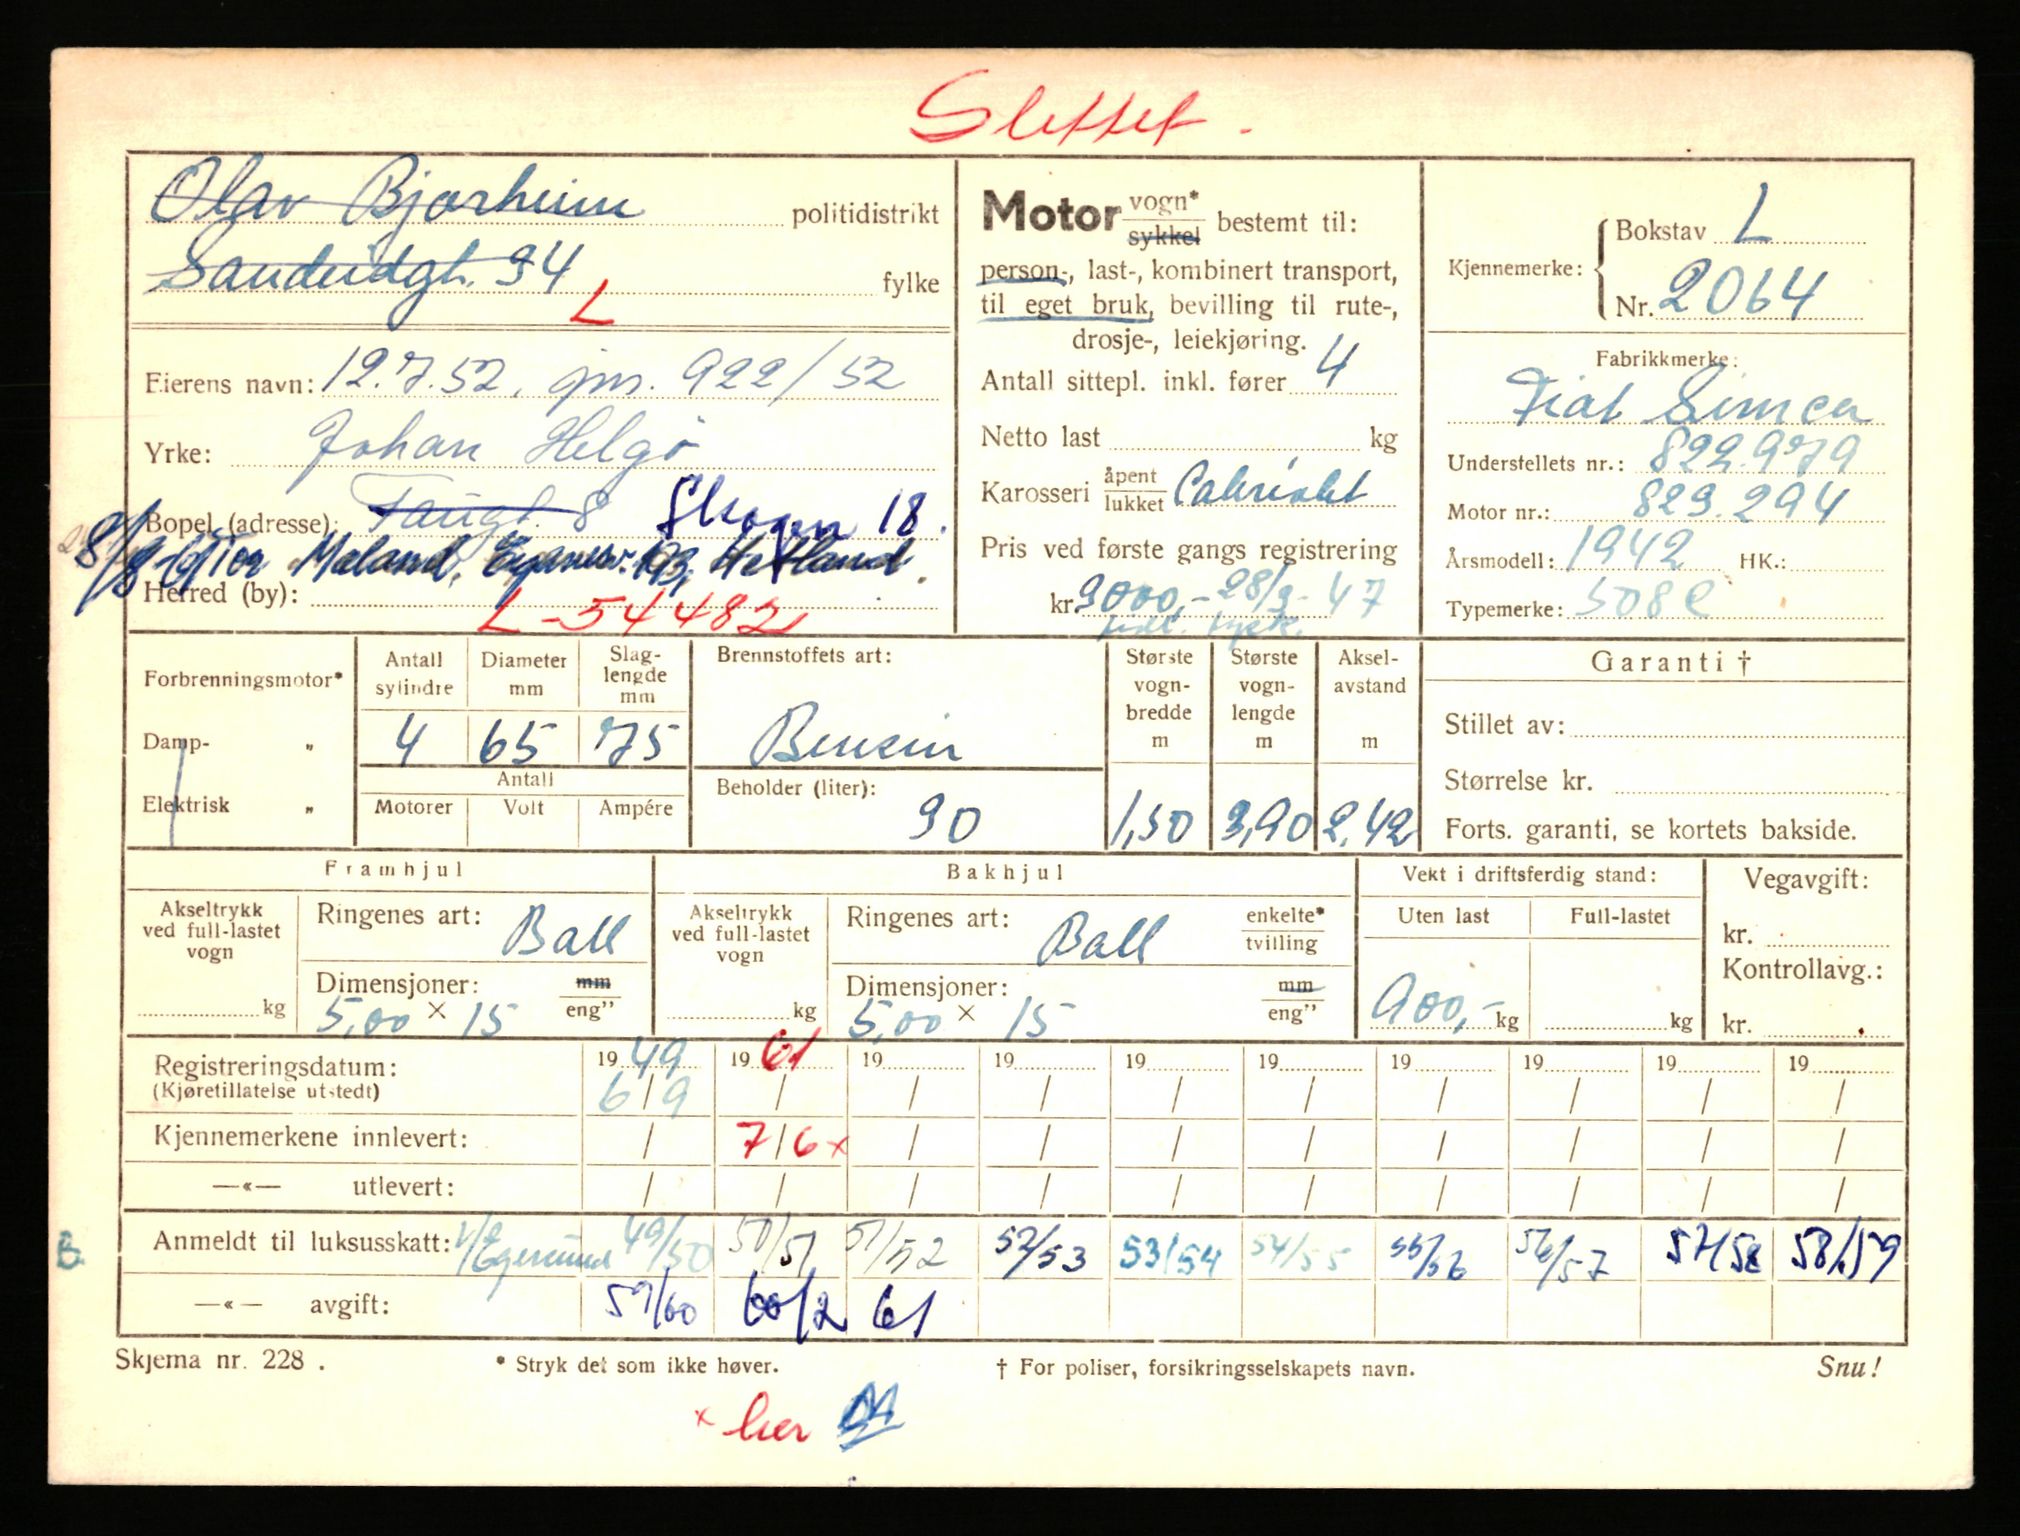 Slettet.
Olav Bjorheim politidistrikt
Sandeidgt. 34 fylke
L
Eierens navn: 12.7.52, jnr. 922/52
Yrke: Johan Helgø
Bopel (adresse): 8 Skogen 18.
Tor Maland, Eiganesv. 193, Hetland.
Herred (by):
L-54482
Motor vogn*/sykkel bestemt til:
person-, last-, kombinert transport,
til eget bruk, bevilling til rute-,
drosje-, leiekjøring.
Antall sittepl. inkl. fører 4
Netto last kg
Karosseri åpent/lukket Cabriolet
Pris ved første gangs registrering
kr. 9000,- 28/3-47
Kjennemerke: Bokstav L
Nr. 2064
Fabrikkmerke:
Fiat Simca
Understellets nr.: 822.979
Motor nr.: 823.294
Årsmodell: 1942 HK.:
Typemerke: 508C
Forbrenningsmotor*
Damp- "
Elektrisk "
Antall sylindre Diameter mm Slag-lengde mm
4 65 75
Antall
Motorer Volt Ampére
Brennstoffets art:
Bensin
Beholder (liter):
30
Største vogn-bredde m Største vogn-lengde m Aksel-avstand m
1,50 3,90 2,42
Garanti †
Stillet av:
Størrelse kr.
Forts. garanti, se kortets bakside.
Framhjul
Akseltrykk ved full-lastet vogn
kg
Ringenes art: Ball
Dimensjoner: mm/eng"
5,00 × 15
Bakhjul
Akseltrykk ved full-lastet vogn
kg
Ringenes art: Ball enkelte*/tvilling
Dimensjoner: mm/eng"
5,00 × 15
Vekt i driftsferdig stand:
Uten last Full-lastet
900,- kg kg
Vegavgift:
kr.
Kontrollavg.:
kr.
Registreringsdatum: 1949 1961 19 19 19 19 19 19 19 19
(Kjøretillatelse utstedt) 6/9 / / / / / / / / /
Kjennemerkene innlevert: / 7/6x / / / / / / / /
—«— utlevert: / / / / / / / / / /
Anmeldt til luksusskatt: Egersund 49/50 50/51 51/52 52/53 53/54 54/55 55/56 56/57 57/58 58/59
—«— avgift: 59/60 60/2 61
B.
Skjema nr. 228 . * Stryk det som ikke høver. † For poliser, forsikringsselskapets navn. Snu!
x her